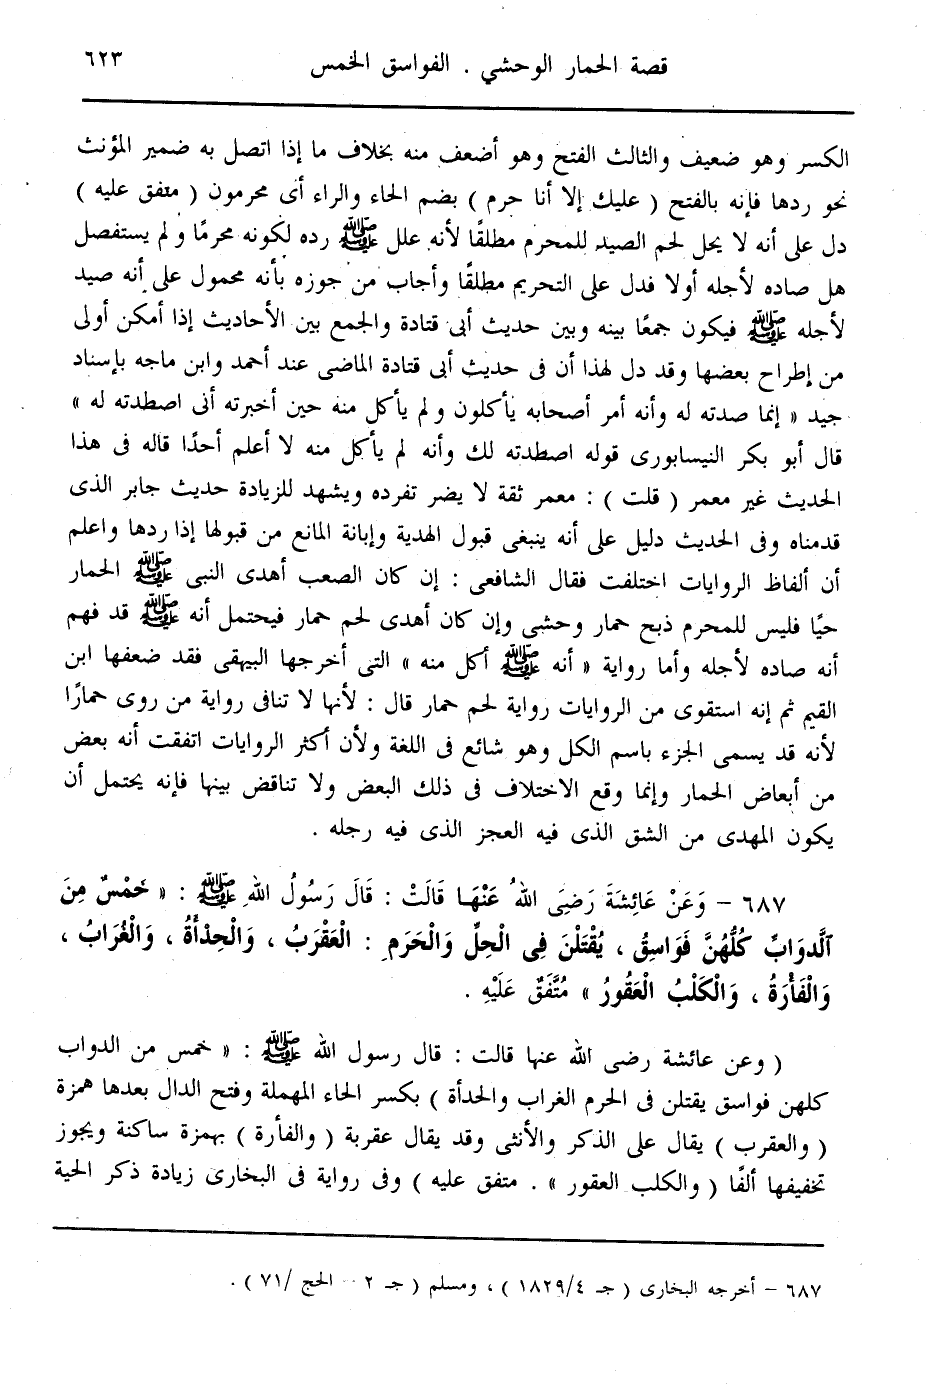 قصة الحمار الوحشي . الفواسق الخمس ٦٢٣
الكسر وهو ضعيف والثالث الفتح وهو أضعف منه بخلاف ما إذا اتصل به ضمير المؤنث
نحو ردها فإنه بالفتح ( عليك إلا أنا حرم ) بضم الحاء والراء أى محرمون ( متفق عليه )
دل على أنه لا يحل لحم الصيد للمحرم مطلقًا لأنه علل ﷺ رده لكونه محرمًا ولم يستفصل
هل صاده لأجله أولا فدل على التحريم مطلقًا وأجاب من جوزه بأنه محمول على أنه صيد
لأجله ﷺ فيكون جمعًا بينه وبين حديث أبى قتادة والجمع بين الأحاديث إذا أمكن أولى
من إطراح بعضها وقد دل لهذا أن فى حديث أبى قتادة الماضى عند أحمد وابن ماجه بإسناد
جيد « إنما صدته له وأنه أمر أصحابه يأكلون ولم يأكل منه حين أخبرته أنى اصطدته له »
قال أبو بكر النيسابورى قوله اصطدته لك وأنه لم يأكل منه لا أعلم أحدًا قاله فى هذا
الحديث غير معمر ( قلت ) : معمر ثقة لا يضر تفرده ويشهد للزيادة حديث جابر الذى
قدمناه وفى الحديث دليل على أنه ينبغى قبول الهدية وإبانة المانع من قبولها إذا ردها واعلم
أن ألفاظ الروايات اختلفت فقال الشافعى : إن كان الصعب أهدى النبى ﷺ الحمار
حيًا فليس للمحرم ذبح حمار وحشى وإن كان أهدى لحم حمار فيحتمل أنه ﷺ قد فهم
أنه صاده لأجله وأما رواية « أنه ﷺ أكل منه » التى أخرجها البيهقى فقد ضعفها ابن
القيم ثم إنه استقوى من الروايات رواية لحم حمار قال : لأنها لا تنافى رواية من روى حمارًا
لأنه قد يسمى الجزء باسم الكل وهو شائع فى اللغة ولأن أكثر الروايات اتفقت أنه بعض
من أبعاض الحمار وإنما وقع الاختلاف فى ذلك البعض ولا تناقض بينها فإنه يحتمل أن
يكون المهدى من الشق الذى فيه العجز الذى فيه رجله .
٦٨٧ – وَعَنْ عَائِشَةَ رَضِيَ اللهُ عَنْهَا قَالَتْ : قَالَ رَسُولُ اللهِ ﷺ : « خَمْسٌ مِنَ
الَّدوَابِّ كُلُّهُنَّ فَوَاسِقُ ، يُقْتَلْنَ فِى الْحِلِّ وَالْحَرَمِ : الْعَقْرَبُ ، وَالْحِدْأَةُ ، وَالْغُرَابُ ،
وَالْفَأْرَةُ ، وَالْكَلْبُ الْعَقُورُ » مُتَّفَقٌ عَلَيْهِ .
( وعن عائشة رضى الله عنها قالت : قال رسول الله ﷺ : « خمس من الدواب
كلهن فواسق يقتلن فى الحرم الغراب والحدأة ) بكسر الحاء المهملة وفتح الدال بعدها همزة
( والعقرب ) يقال على الذكر والأنثى وقد يقال عقربة ( والفأرة ) بهمزة ساكنة ويجوز
تخفيفها ألفًا ( والكلب العقور » . متفق عليه ) وفى رواية فى البخارى زيادة ذكر الحية
٦٨٧ – أخرجه البخارى ( جـ ٤/١٨٢٩ ) ، ومسلم ( جـ ٢ – الحج /٧١ ) .